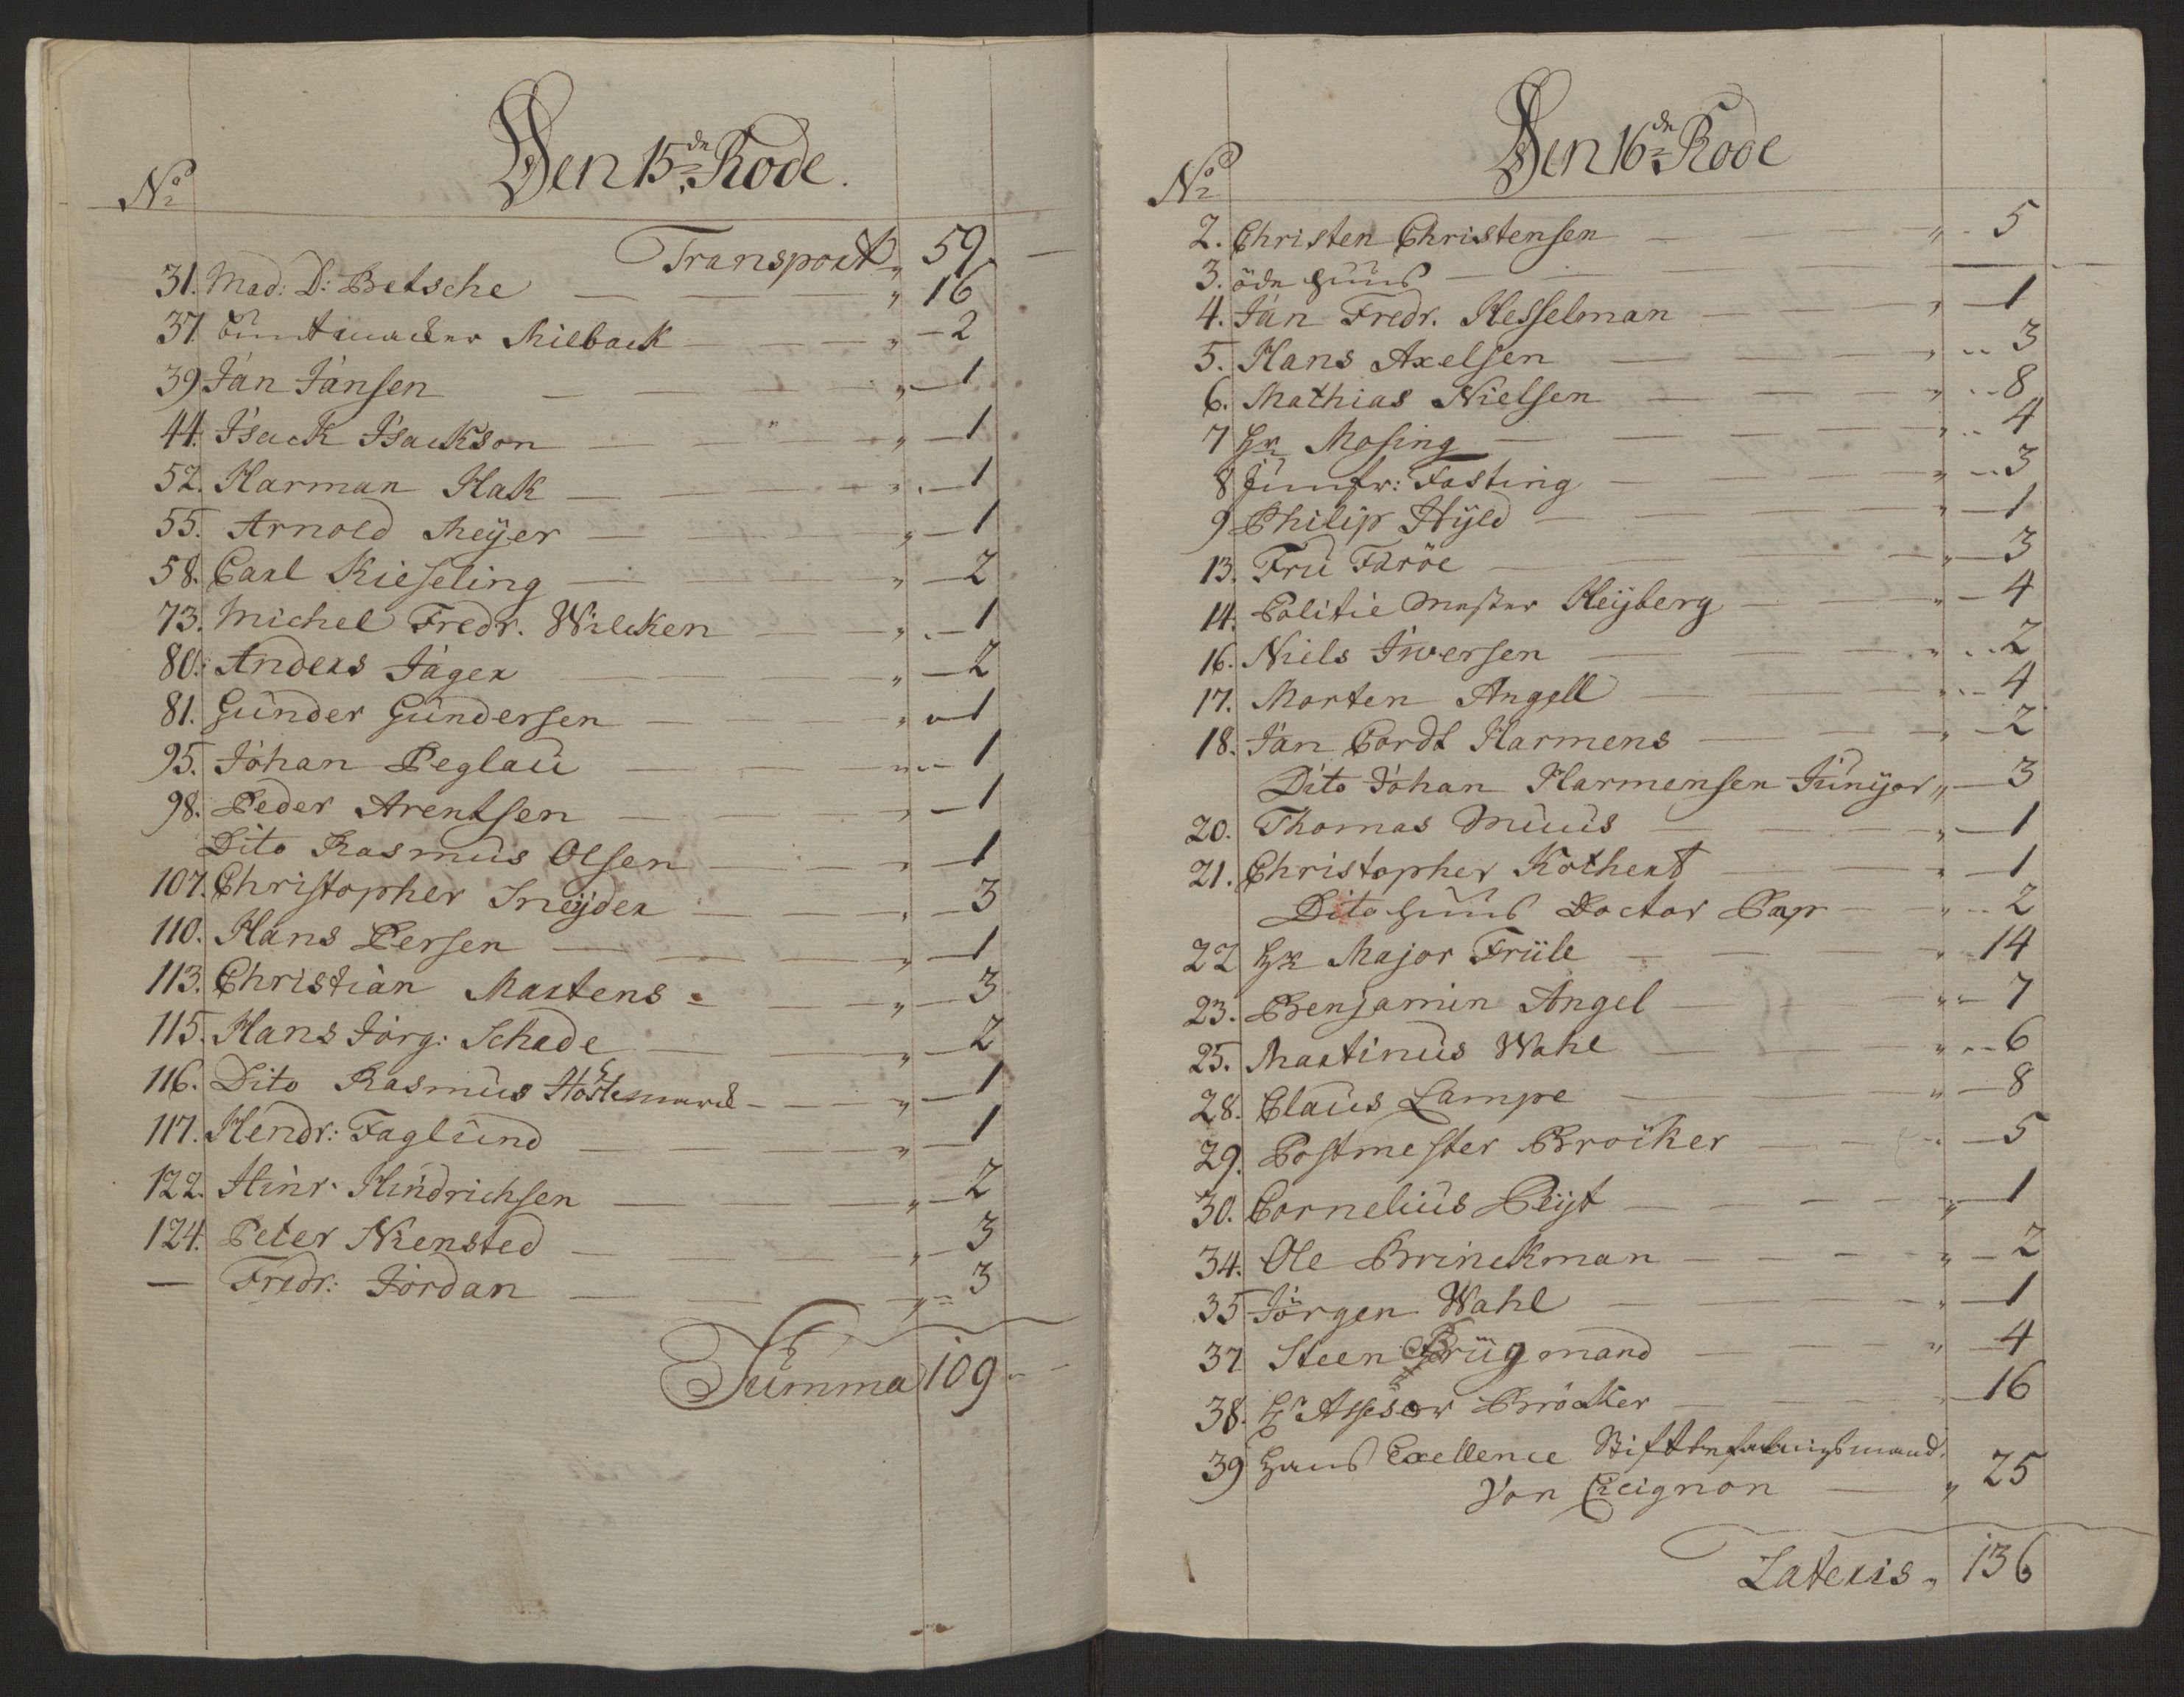 Den 15de Rode.
No
Transport „ 59 —
31. Mad: D: Betsche — — — „ 16
37 Buntmacker Milback — — — „ — 2
39 Jan Jansen — — — „ — 1
44. Isack Isackson — — — „ — 1
52. Harman Hak — — — „ — 1
55. Arnold Meÿer — — — „ — 1
58. Carl Kieseling — — — „ — 2
73. Michel Fredr. Wilcken — — „ — 1
80. Anders Jäger — — — „ — 2
81. Gunder Gundersen — — — „ — 1
95. Johan Peglau — — — „ — 1
98. Peder Arentsen — — — „ — 1
Dito Rasmus Olsen — — — „ — 1
107. Christopher Sneÿder — — — „ — 3
110. Hans Persen — — — „ — 1
113. Christian Martens — — — „ — 3
115. Hans Jörg: Schade — — — „ — 2
116. Dito Rasmus Höstemarck — — — „ — 1
117. Hendr: Faglund — — — „ — 1
122. Hinr. Hindrichsen — — — „ — 2
124. Peter Niensted — — — „ — 3
— Fredr: Jordan — — — „ — 3
Summa 109 „ —
Den 16de Rode
No
2. Christen Christensen — „ 5
3. öde Huus — — — —
4. Jan Fredr. Hesselman — — — „ — 1
5. Hans Axelsen — — — „ 3
6. Mathias Nielsen — — — „ 8
7 Hr Mosing — — — „ 4
8 Jumfr: Fasting — — — „ 3
9 Philip Hÿld — — — „ — 1
13. Fru Faröe — — — „ — 3
14. Politie Mester Heÿberg — — „ — 4
16. Niels Iwersen — — — „ 2
17. Morten Angell — — — „ 4
18. Jan Cordt Harmens — — — „ — 2
Dito Johan Harmensen Junÿor „ — 3
20. Thomas Muus — — — „ — 1
21. Christopher Kothert — — — „ — 1
Dito Huus Doctor Pap — — „ 2
22 Hr Major Früle — — — „ 14
23. Benjamin Angel — — — „ 7
25. Martinus Wahl — — — „ 6
28. Claus Lampe — — — „ — 8
29. Postmester Broiker — — — „ — 5
30. Cornelius Peÿt — — — „ — 1
34. Ole Brinckman — — — „ — 2
35 Jörgen Wahl — — — „ — 1
37 Steen Brügmand — — — „ — 4
38. Hr Assesor Bröcker — — — „ 16
39 Hans Exellence Stiftbefalingsmand.
Von Cicignon — „ 25
Lateris „ 136